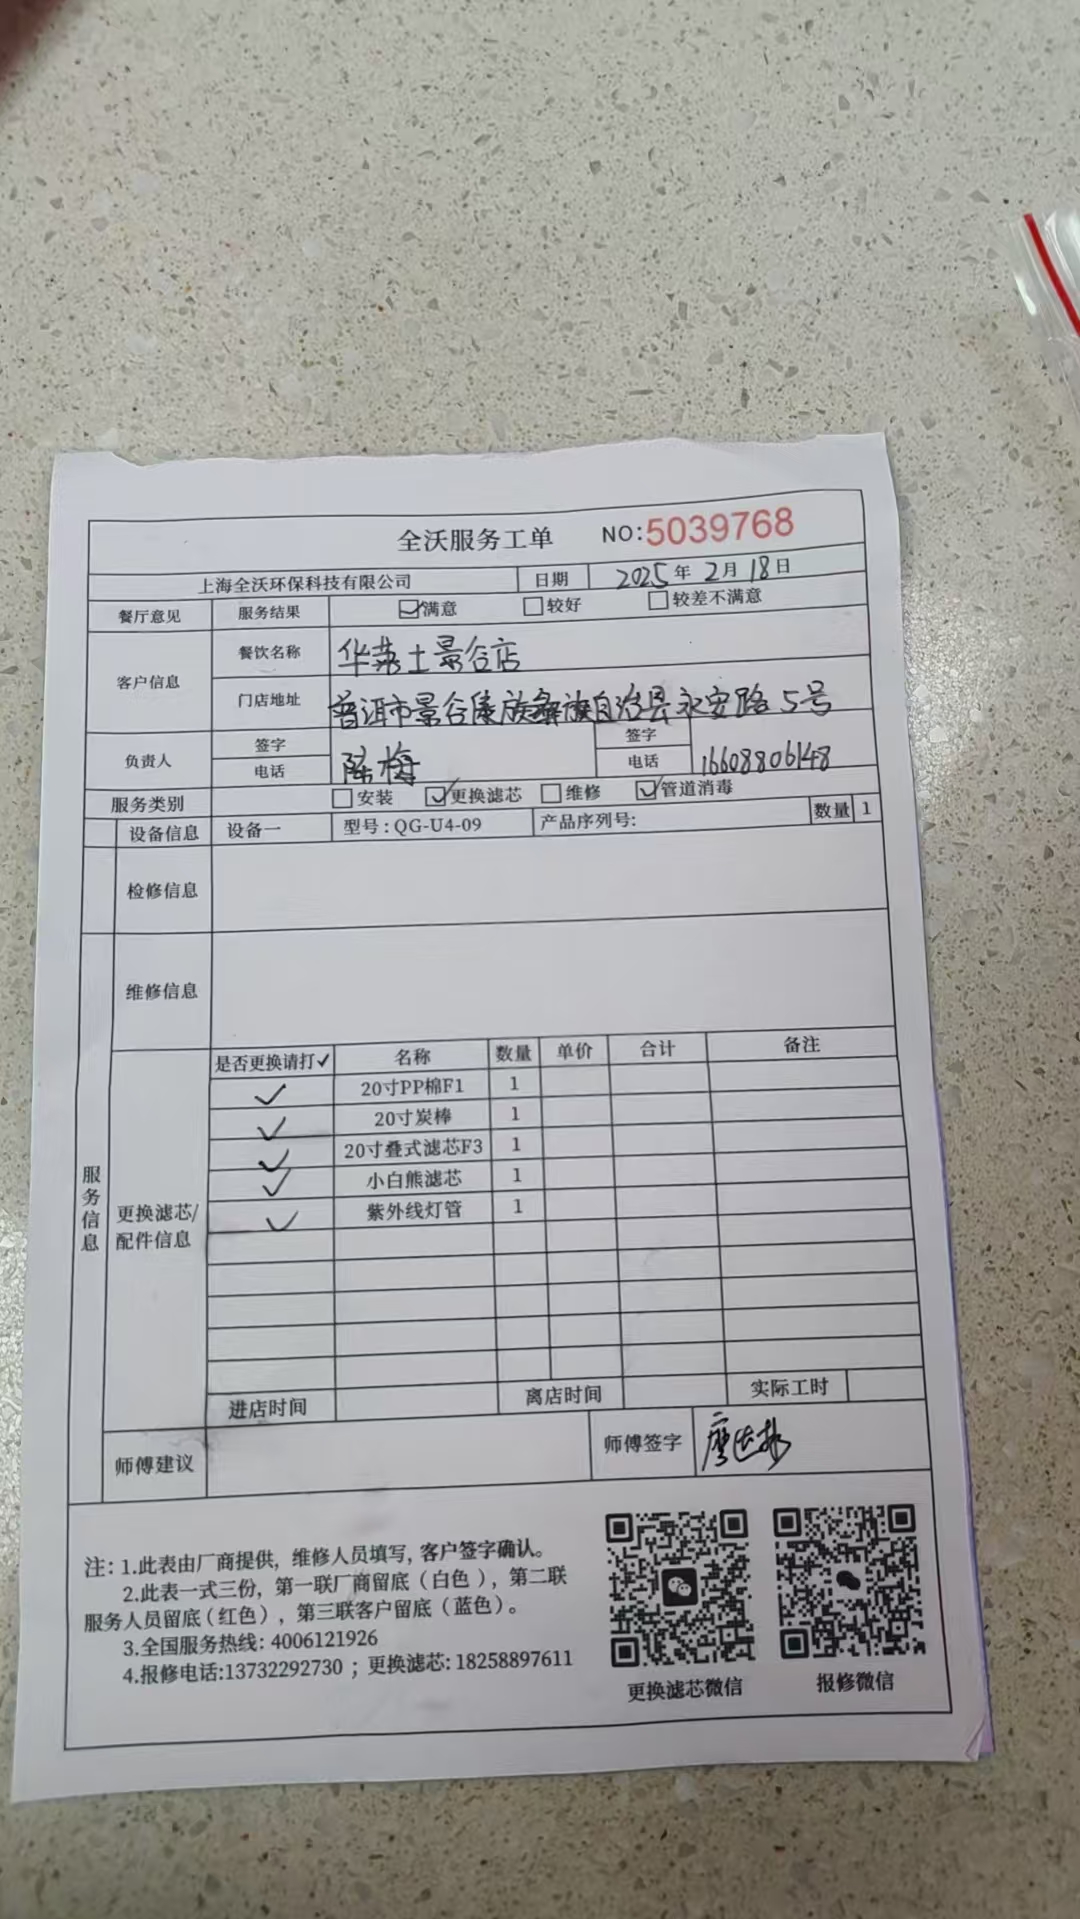 全沃服务工单 NO:5039768
上海全沃环保科技有限公司 日期 2025年2月18日
餐厅意见 服务结果 ☑满意 □较好 □较差不满意
客户信息 餐饮名称 华莱士景谷店
门店地址 普洱市景谷傣族彝族自治县永安路5号
负责人 签字 电话 陈梅 签字 电话 16608806148
服务类别 □安装 ☑更换滤芯 □维修 ☑管道消毒
设备信息 设备一 型号:QG-U4-09 产品序列号: 数量 1
检修信息
维修信息
服务信息
更换滤芯/配件信息
是否更换请打✓ 名称 数量 单价 合计 备注
✓ 20寸PP棉F1 1
✓ 20寸炭棒 1
✓ 20寸叠式滤芯F3 1
✓ 小白熊滤芯 1
✓ 紫外线灯管 1
进店时间 离店时间 实际工时
师傅建议 师傅签字
注:1.此表由厂商提供,维修人员填写,客户签字确认。
2.此表一式三份,第一联厂商留底(白色),第二联
服务人员留底(红色),第三联客户留底(蓝色)。
3.全国服务热线:4006121926
4.报修电话:13732292730;更换滤芯:18258897611
更换滤芯微信 报修微信